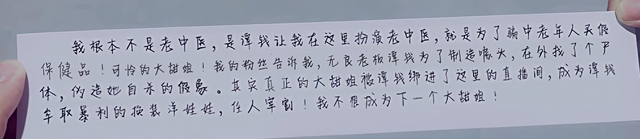 我根本不是老中医，是谭钱让我在这里扮演老中医，就是为了骗中老年人买假
保健品！可怜的大甜姐！我的粉丝告诉我，无良老板谭钱为了制造噱头，在外找了个尸
体，伪造她自杀的假象。其实真正的大甜姐被谭钱绑进了这里的直播间，成为谭钱
牟取暴利的换装洋娃娃，任人宰割！我不想成为下一个大甜姐！